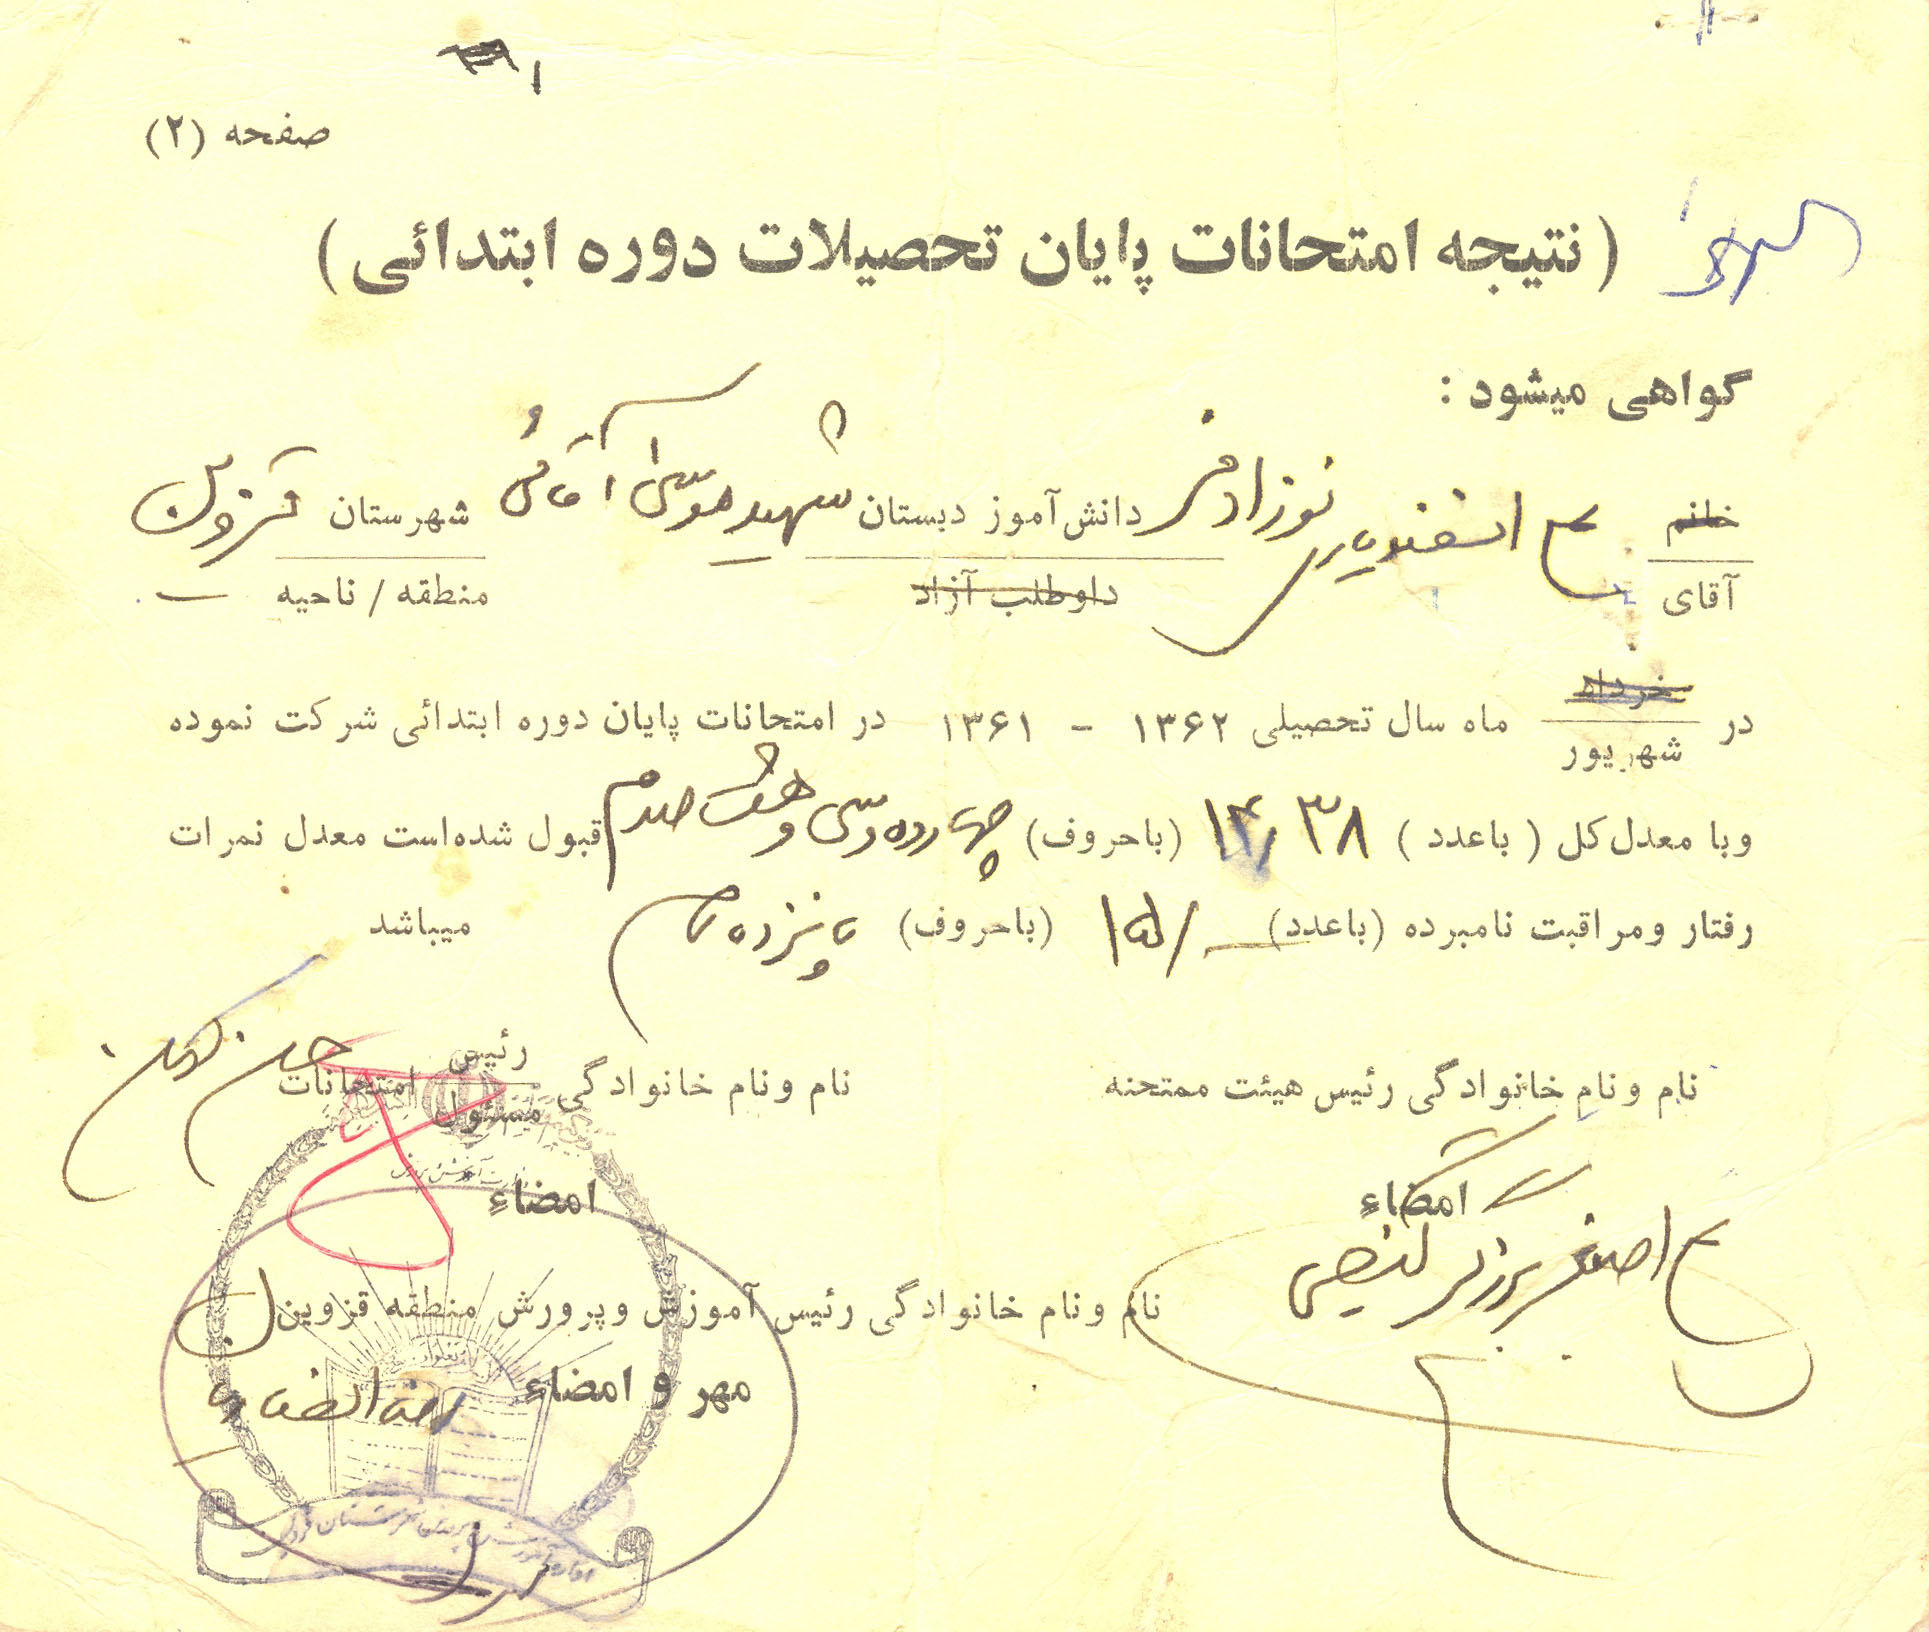 صفحه (۲)
(نتیجه امتحانات پایان تحصیلات دوره ابتدائی)
گواهی میشود :
خانم اسفندیار نوزاد فر دانش‌آموز دبستان شهید موسی آقائی شهرستان قزوین
آقای داوطلب آزاد منطقه / ناحیه —
خرداد
در ماه سال تحصیلی ۱۳۶۲ - ۱۳۶۱ در امتحانات پایان دوره ابتدائی شرکت نموده
شهریور
وبا معدل کل (باعدد) ۱۴/۳۸ (باحروف) چهارده و سی و هشت صدم قبول شده‌است معدل نمرات
رفتار ومراقبت نامبرده (باعدد) ۱۵/— (باحروف) پانزده تمام میباشد
رئیس
نام ونام خانوادگی رئیس هیئت ممتحنه نام ونام خانوادگی امتحانات حسن
مسئول
وزارت آموزش و پرورش
امضاء امضاء
اصغر برزگر
نام ونام خانوادگی رئیس آموزش وپرورش منطقه قزوین
مهر و امضاء
اداره آموزش و پرورش شهرستان قزوین